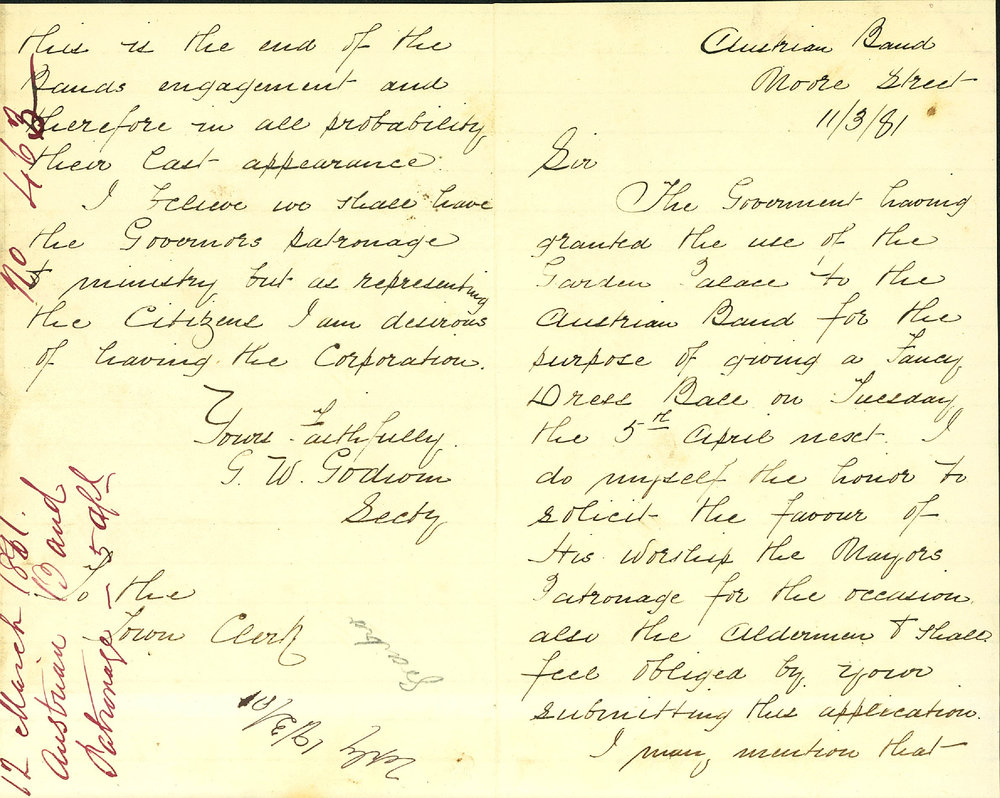 Austrian Band
Moore Street
11/3/81
Sir
The Goverment having
granted the use of the
Garden Palace to the
Austrian Band for the
purpose of giving a Fancy
Dress Ball on Tuesday
the 5th April next. I
do myself the honor to
solicit the favour of
His Worship the Mayors
Patronage for the occasion
also the Aldermen & shall
feel obliged by your
submitting this application.
I may mention that
this is the end of the
Bands engagement and
therefore in all probability
their last appearance
I believe we shall have
the Governors patronage
& ministry but as representing
the Citizens I am desirous
of having the Corporation.
Yours Faithfully.
G. W. Godwin
Secty
To the
Town Clerk
No 463
12 March 1881.
Austrian Band
Patronage – 5 Apl